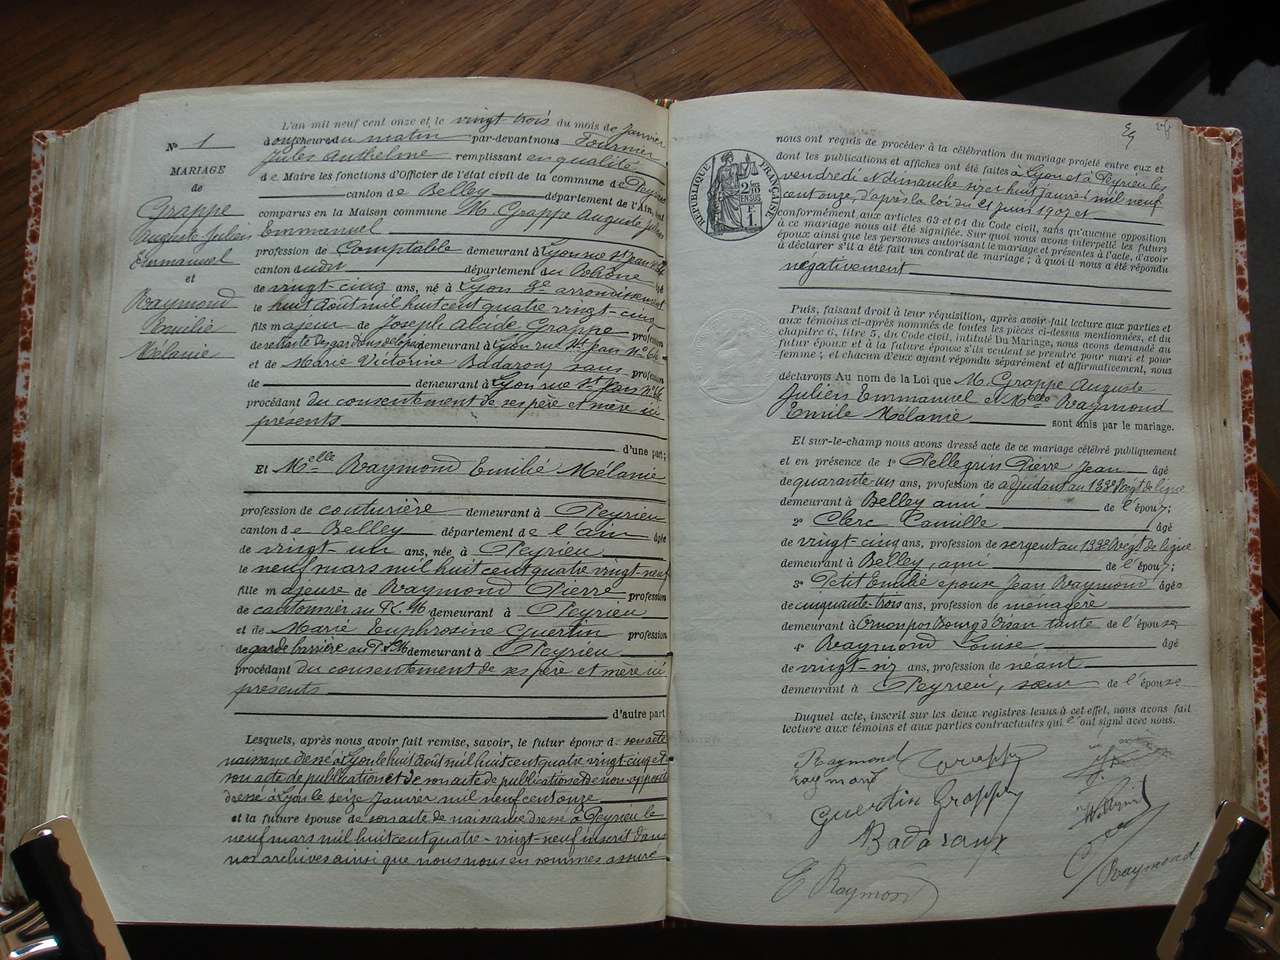 N° 1
MARIAGE
de
Grappe
Auguste Julien
Emmanuel
et
Raymond
Emilie
Mélanie
L'an mil neuf cent onze et le vingt trois du mois de Janvier
à onze heures du matin par-devant nous Fournier
Jules Anthelme remplissant en qualité
de Maire les fonctions d'Officier de l'état civil de la commune de Peyrieu
canton de Belley département de l'Ain, ont
comparus en la Maison commune M. Grappe Auguste Julien
Emmanuel
profession de Comptable demeurant à Lyon rue St Jean N° 66
canton dudit département du Rhône âgé
de vingt-cinq ans, né à Lyon 5e arrondissement
le huit août mil huit cent quatre vingt-cinq
fils majeur de Joseph Alcide Grappe profession
de retraité des gardiens de la paix demeurant à Lyon rue St Jean N° 66
et de Marie Victorine Badaroux sans profession
de demeurant à Lyon rue St Jean N° 66
procédant du consentement de ses père et mère ici
présents
d'une part;
Et Melle Raymond Emilie Mélanie
profession de couturière demeurant à Peyrieu
canton de Belley département de l'ain âgée
de vingt-un ans, née à Peyrieu
le neuf mars mil huit cent quatre vingt-neuf
fille majeure de Raymond Pierre profession
de cantonnier au P.L.M demeurant à Peyrieu
et de Marie Euphrosine Guertin profession
de garde barrière au P.L.M demeurant à Peyrieu
procédant du consentement de ses père et mère ici
présents
d'autre part
Lesquels, après nous avoir fait remise, savoir, le futur époux de son acte
naissance de né à Lyon le huit août mil huit cent quatre vingt cinq et
son acte de publication et de son acte de publications et de non-opposit
dressé à Lyon le seize Janvier mil neuf cent onze
et la future épouse de son acte de naissance dressé à Peyrieu le
neuf mars mil huit cent quatre-vingt-neuf inscrit dans
nos archives ainsi que nous nous en sommes assuré
RÉPUBLIQUE FRANÇAISE
2/10 EN SUS
nous ont requis de procéder à la célébration du mariage projeté entre eux et
dont les publications et affiches ont été faites à Lyon et à Peyrieu les
vendredi et dimanche six et huit Janvier mil neuf
cent onze, d'après la loi du 21 juin 1907 et
conformément aux articles 63 et 64 du Code civil, sans qu'aucune opposition
à ce mariage nous ait été signifiée. Sur quoi nous avons interpellé les futurs
époux ainsi que les personnes autorisant le mariage et présentes à l'acte, d'avoir
à déclarer s'il a été fait un contrat de mariage; à quoi il nous a été répondu
négativement
Puis, faisant droit à leur réquisition, après avoir fait lecture aux parties et
aux témoins ci-après nommés de toutes les pièces ci-dessus mentionnées, et du
chapitre 6, titre 5, du Code civil, intitulé Du Mariage, nous avons demandé au
futur époux et à la future épouse s'ils veulent se prendre pour mari et pour
femme; et chacun d'eux ayant répondu séparément et affirmativement, nous
déclarons Au nom de la Loi que M. Grappe Auguste
Julien Emmanuel et Melle Raymond
Emilie Mélanie sont unis par le mariage.
Et sur-le-champ nous avons dressé acte de ce mariage célébré publiquement
et en présence de 1° Pellegrin Pierre Jean âgé
de quarante ans, profession de adjudant au 133e Regt de ligne
demeurant à Belley ami de l'époux;
2° Clerc Camille âgé
de vingt-cinq ans, profession de sergent au 133e Regt de ligne
demeurant à Belley, ami de l'époux;
3° Petit Emilie épouse Jean Raymond âgée
de cinquante-trois ans, profession de ménagère
demeurant à tante de l'épouse
4° Raymond Louise âgé
de vingt-six ans, profession de néant
demeurant à Peyrieu, sœur de l'épouse
Duquel acte, inscrit sur les deux registres tenus à cet effet, nous avons fait
lecture aux témoins et aux parties contractantes qui l'ont signé avec nous.
Raymond Grappe
Raymond
Guertin Grappe
Badaroux
E Raymond
Raymond